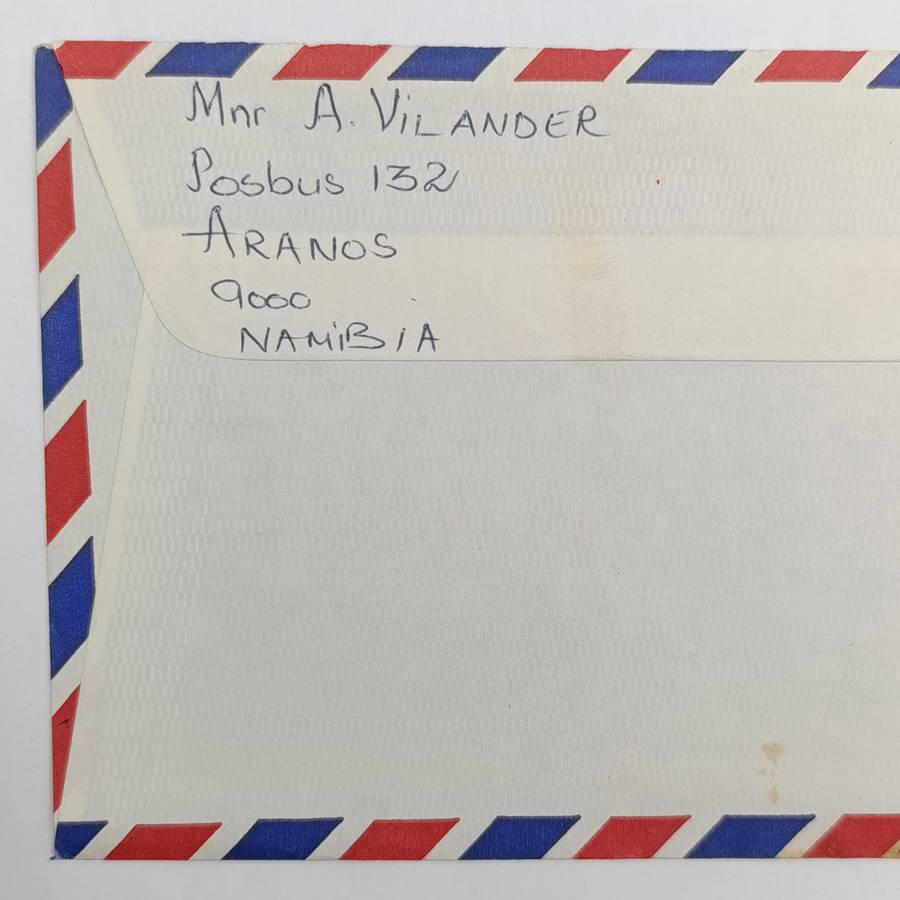 Mnr A. VILANDER
Posbus 132
ARANOS
9000
NAMIBIA